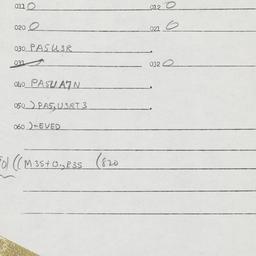 011 0 012 0
020 0 021 0
030 PASU3R
031 032 0
040 PASUA7N
050 )PAS,U3RT3
060 )-EVED
((M35+O-,P3S (820